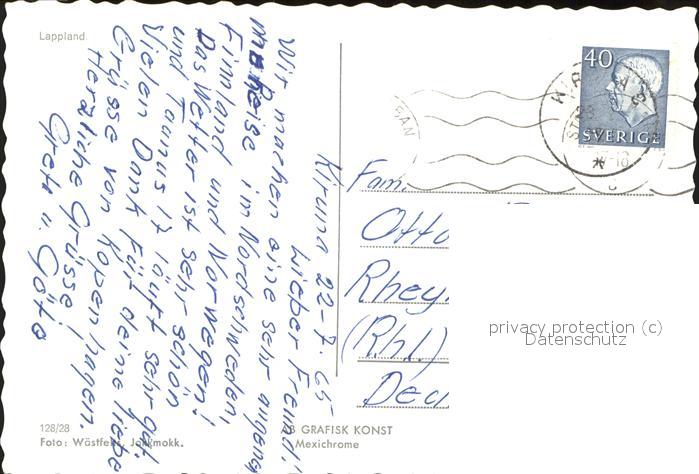 Lappland
40
SVERIGE
Kiruna 22-7-65
Lieber Freund,
Wir machen eine sehr angeneh
me Reise in Nordschweden,
Finnland und Norwegen!
Das Wetter ist sehr schön
und Taunus 17 läuft sehr gut.
Vielen Dank für deine liebe
Grüsse von Kopenhagen.
Herzliche Grüsse!
Greta u. Göte
Fam.
Otto
Rhey
(Rhl.)
Deu
privacy protection (c)
Datenschutz
128/28
Foto: Wästfelts, Jokkmokk.
AB GRAFISK KONST
Mexichrome